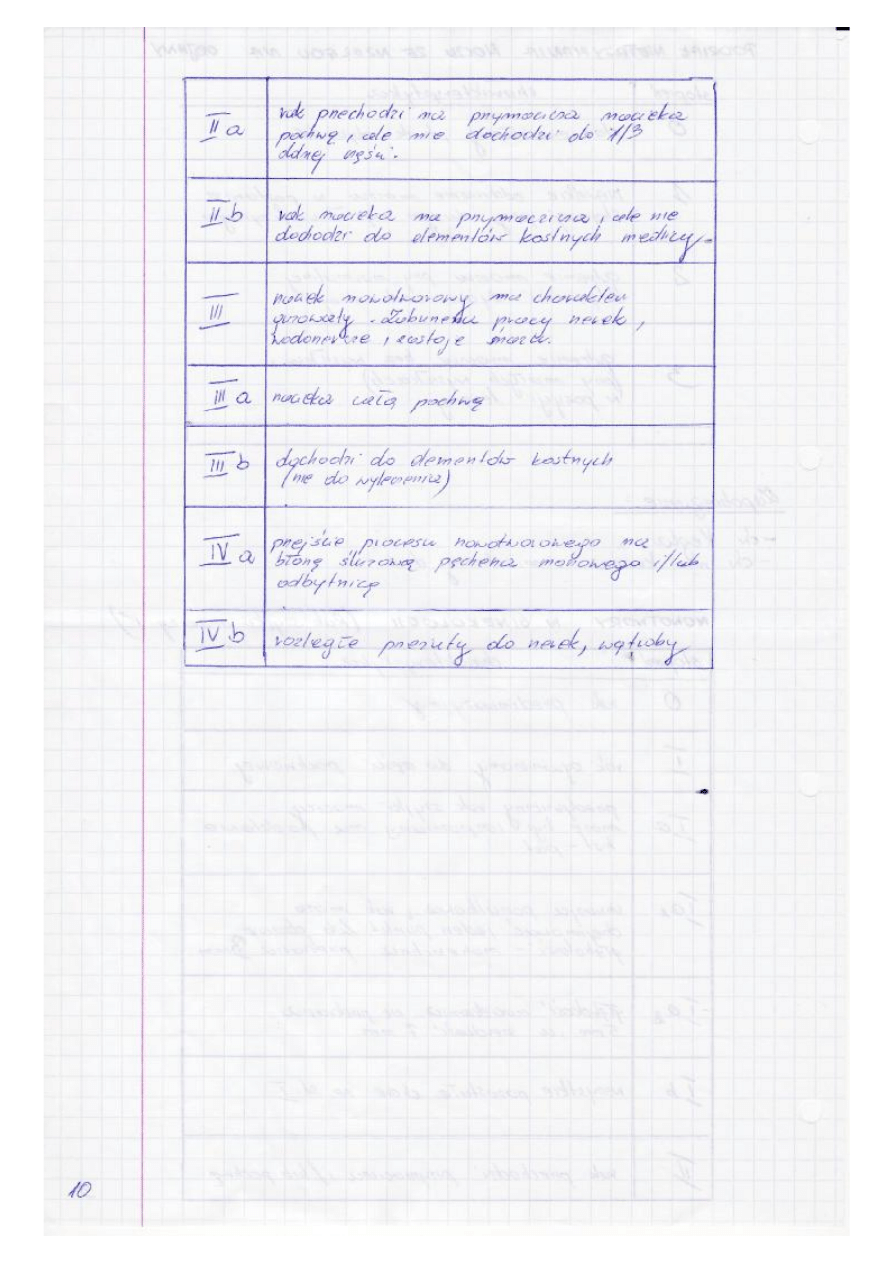 II a
rak przechodzi na przymacicza nacieka
pochwę, ale nie dochodzi do 1/3
dolnej części.
II b
rak nacieka na przymaczicza, ale nie
dochodzi do elementów kostnych
III
naciek nowotworowy ma charakter
guzowaty. Zaburzenia pracy nerek,
wodonercze, zastoje
III a
nacieka całą pochwę
III b
dochodzi do elementów kostnych
(nie do wyleczenia)
IV a
przejście procesu nowotworowego na
błonę śluzową pęcherza moczowego i/lub
odbytnicę
IV b
rozległe przerzuty do nerek, wątroby
10